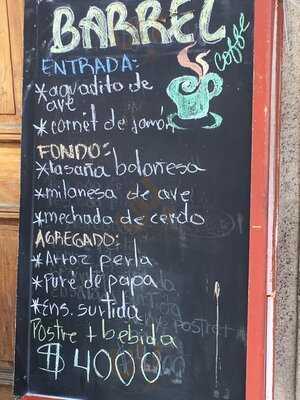 BARREL
Coffee
ENTRADA:
*aguadito de
ave
*cornet de jamón
FONDO:
*lasaña boloñesa
*milanesa de ave
*mechada de cerdo
AGREGADO:
*Arroz perla
*Puré de papa
*Ens. surtida
Postre + bebida
$4000